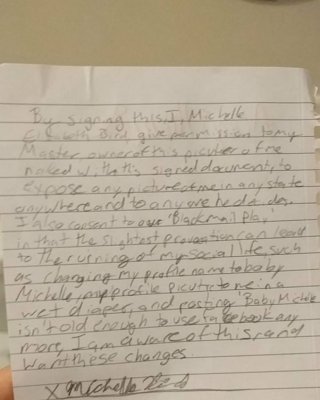 By signing this, I, Michelle
give permission to my
Master owner of this picture of me
naked with this signed document, to
expose any picture of me in any state
anywhere and to anyone he
I also consent to our 'Blackmail Play'
in that the slightest provocation can lead
to the ruining of my social life, such
as changing my profile name to baby
Michelle, my profile to me in a
wet diaper, and posting 'Baby Michelle
isn't old enough to use facebook any
more. I am aware of this, and
want these changes.
X Michelle